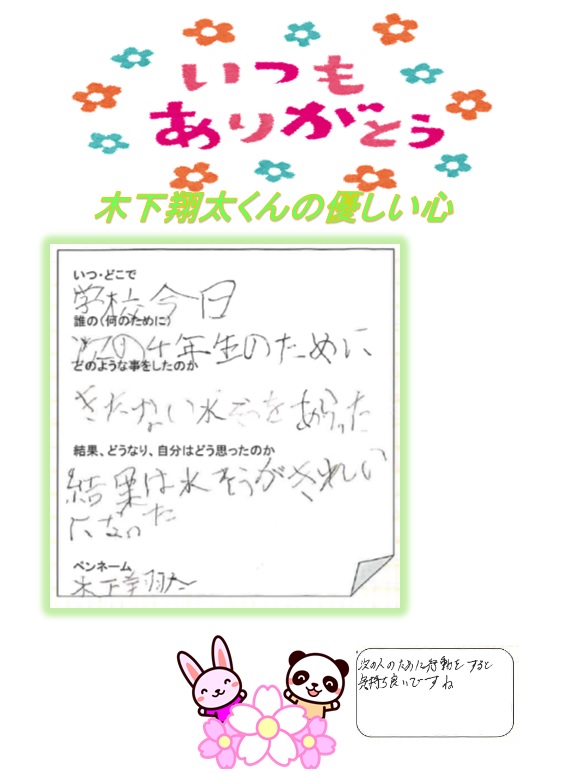 いつも
ありがとう
木下翔太くんの優しい心
いつ・どこで
学校今日
誰の(何のために)
次の4年生のために
どのような事をしたのか
きたない水そうをあらった
結果、どうなり、自分はどう思ったのか
結果は水そうがきれい
になった
ペンネーム
木下翔太
次の人のために行動をすると
気持ち良いですね